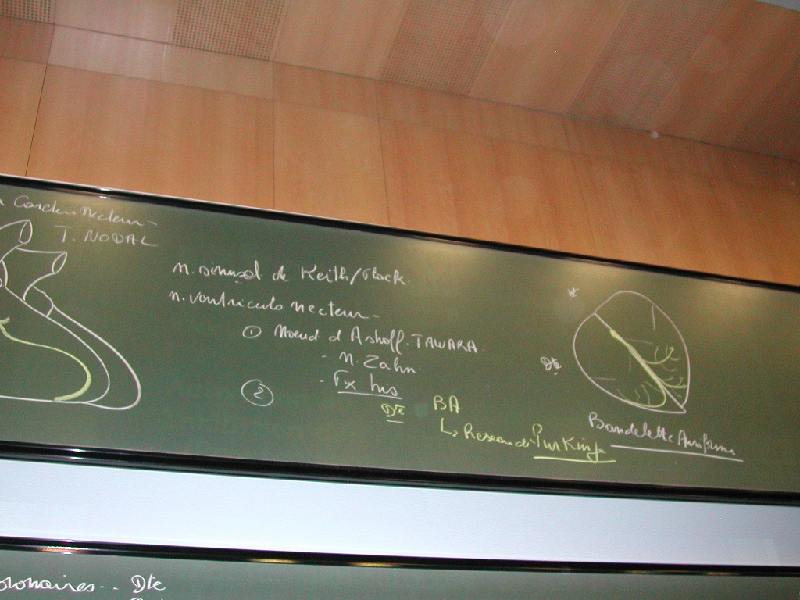 Cardionecteur
T. NODAL
n. sinusal de Keith/Flack
n. ventriculonecteur
① Noeud d Ashoff. TAWARA
. n. Zahn
. Fx his
②
Dt BA
↳ Reseau de Purkinje
*
Dt
Bandelette Ansiforme
oronaires .. Dte